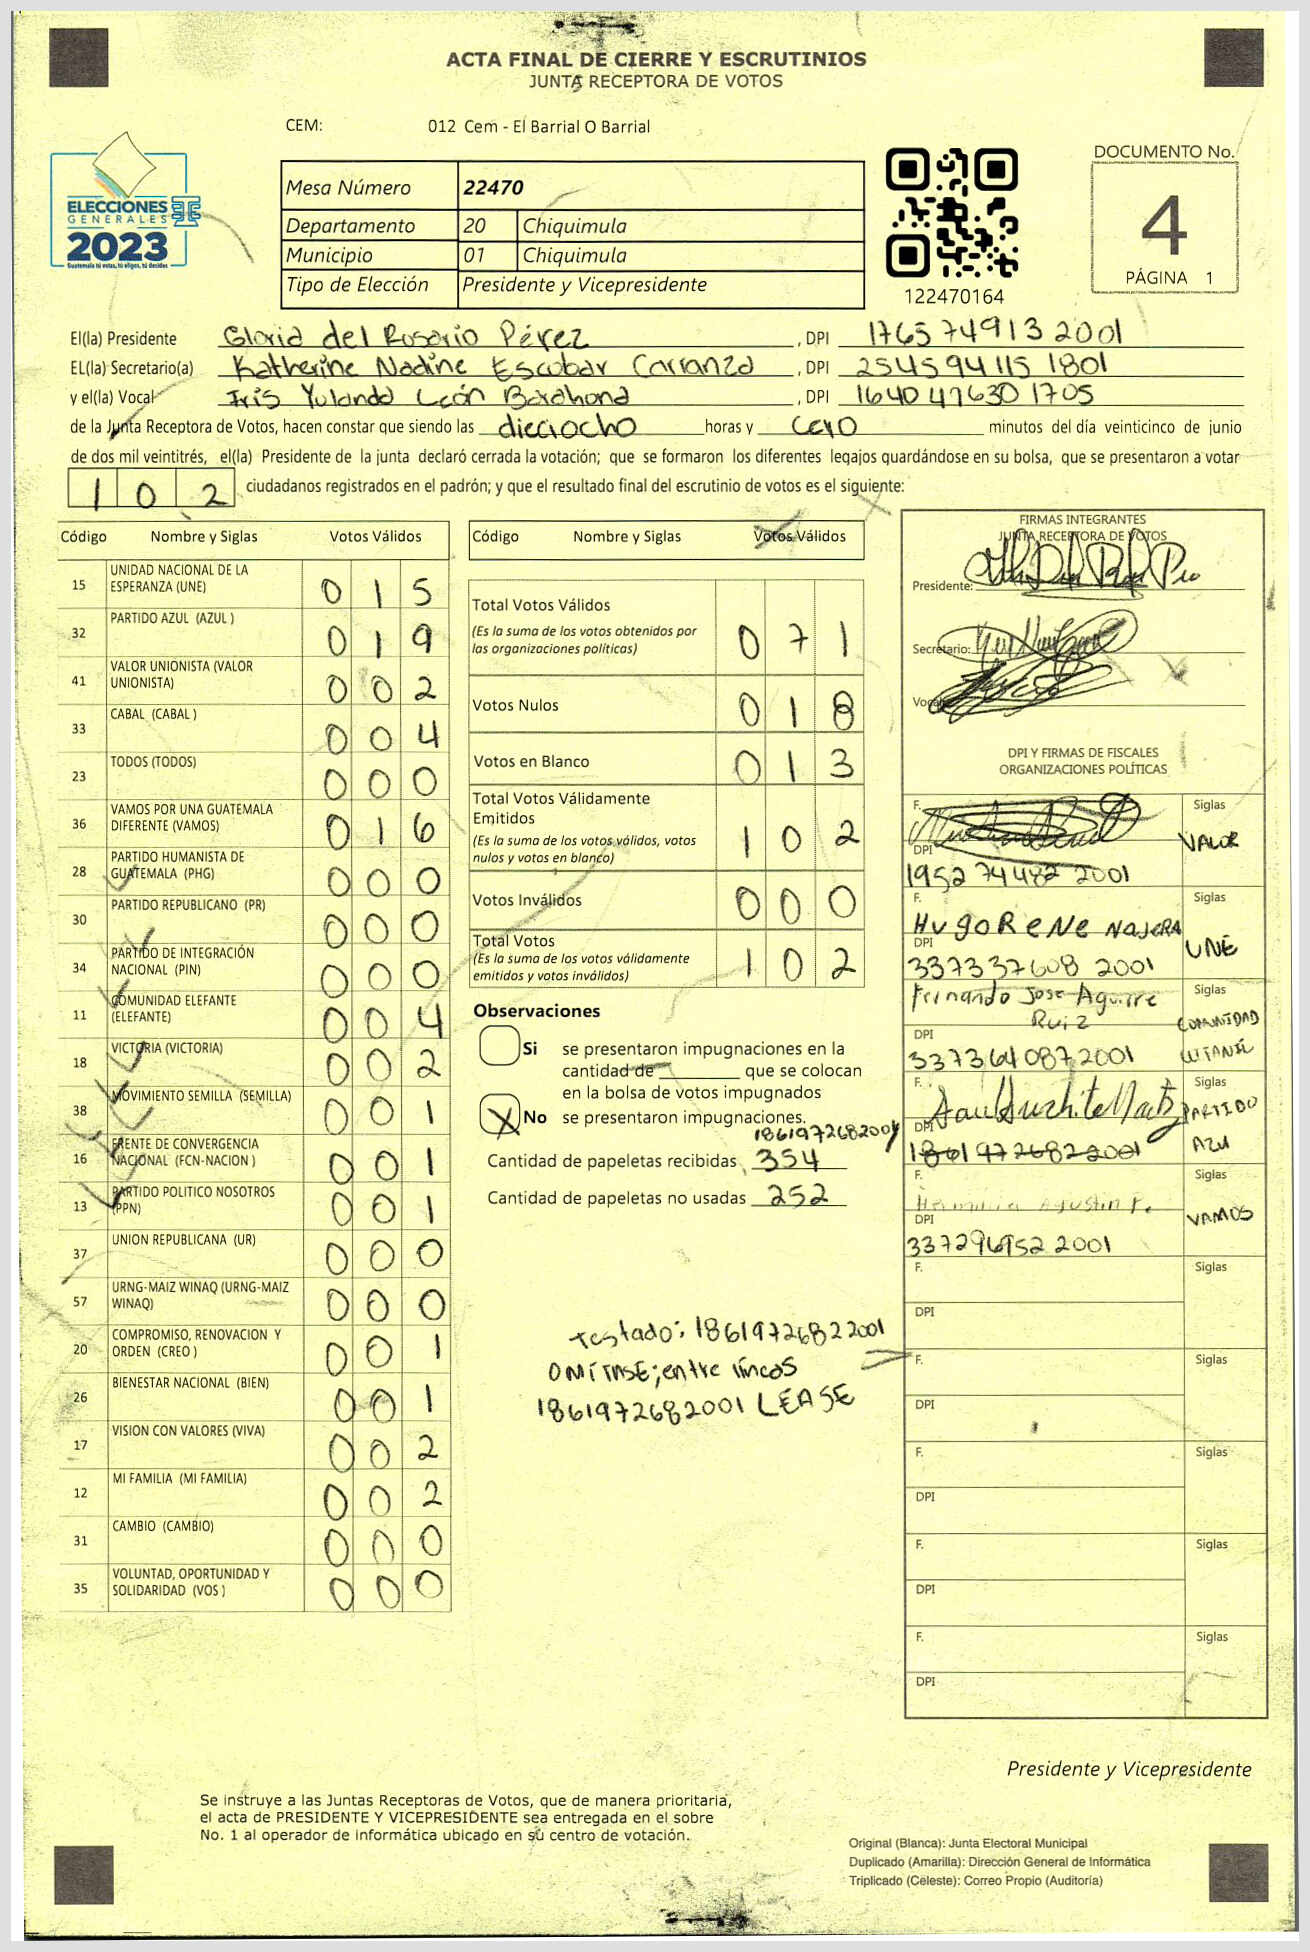 ACTA FINAL DE CIERRE Y ESCRUTINIOS
JUNTA RECEPTORA DE VOTOS
CEM: 012 Cem - El Barrial O Barrial
ELECCIONES
GENERALES
2023
Guatemala tú votas, tú eliges, tú decides
Mesa Número 22470
Departamento 20 Chiquimula
Municipio 01 Chiquimula
Tipo de Elección Presidente y Vicepresidente
122470164
DOCUMENTO No.
4
PÁGINA 1
El(la) Presidente Gloria del Rosario Pérez , DPI 1765 74913 2001
EL(la) Secretario(a) Katherine Nadine Escobar Carranza , DPI 2545 94115 1801
y el(la) Vocal Iris Yulanda León Barahona , DPI 1640 47630 1705
de la Junta Receptora de Votos, hacen constar que siendo las dieciocho horas y cero minutos del día veinticinco de junio
de dos mil veintitrés, el(la) Presidente de la junta declaró cerrada la votación; que se formaron los diferentes legajos guardándose en su bolsa, que se presentaron a votar
102 ciudadanos registrados en el padrón; y que el resultado final del escrutinio de votos es el siguiente:
Código Nombre y Siglas Votos Válidos
15 UNIDAD NACIONAL DE LA ESPERANZA (UNE) 0 1 5
32 PARTIDO AZUL (AZUL ) 0 1 9
41 VALOR UNIONISTA (VALOR UNIONISTA) 0 0 2
33 CABAL (CABAL ) 0 0 4
23 TODOS (TODOS) 0 0 0
36 VAMOS POR UNA GUATEMALA DIFERENTE (VAMOS) 0 1 6
28 PARTIDO HUMANISTA DE GUATEMALA (PHG) 0 0 0
30 PARTIDO REPUBLICANO (PR) 0 0 0
34 PARTIDO DE INTEGRACIÓN NACIONAL (PIN) 0 0 0
11 COMUNIDAD ELEFANTE (ELEFANTE) 0 0 4
18 VICTORIA (VICTORIA) 0 0 2
38 MOVIMIENTO SEMILLA (SEMILLA) 0 0 1
16 FRENTE DE CONVERGENCIA NACIONAL (FCN-NACION ) 0 0 1
13 PARTIDO POLITICO NOSOTROS (PPN) 0 0 1
37 UNION REPUBLICANA (UR) 0 0 0
57 URNG-MAIZ WINAQ (URNG-MAIZ WINAQ) 0 0 0
20 COMPROMISO, RENOVACION Y ORDEN (CREO ) 0 0 1
26 BIENESTAR NACIONAL (BIEN) 0 0 1
17 VISION CON VALORES (VIVA) 0 0 2
12 MI FAMILIA (MI FAMILIA) 0 0 2
31 CAMBIO (CAMBIO) 0 0 0
35 VOLUNTAD, OPORTUNIDAD Y SOLIDARIDAD (VOS ) 0 0 0
Código Nombre y Siglas Votos Válidos
Total Votos Válidos 0 7 1
(Es la suma de los votos obtenidos por
las organizaciones politicas)
Votos Nulos 0 1 8
Votos en Blanco 0 1 3
Total Votos Válidamente
Emitidos 1 0 2
(Es la suma de los votos válidos, votos
nulos y votos en blanco)
Votos Inválidos 0 0 0
Total Votos 1 0 2
(Es la suma de los votos válidamente
emitidos y votos inválidos)
Observaciones
Si se presentaron impugnaciones en la
cantidad de ________ que se colocan
en la bolsa de votos impugnados
X No se presentaron impugnaciones.
1861972682001
Cantidad de papeletas recibidas 354
Cantidad de papeletas no usadas 252
Testado: 18619726822001
OMITASE; entre líneas
1861972682001 LEASE
FIRMAS INTEGRANTES
JUNTA RECEPTORA DE VOTOS
Presidente:
Secretario:
Vocal
DPI Y FIRMAS DE FISCALES
ORGANIZACIONES POLÍTICAS
F. Siglas
VALOR
DPI
1952 74482 2001
F. Siglas
HUgo ReNe NAJERA
UNE
DPI
337337608 2001
Siglas
Fernando Jose Aguirre
Ruiz
COMUNIDAD
DPI
3373640872001
F. Siglas
PARTIDO
AZUL
DPI
18619726822001
F. Siglas
Agustin P.
VAMOS
DPI
337296952 2001
F. Siglas
DPI
F. Siglas
DPI
F. Siglas
DPI
F. Siglas
DPI
F. Siglas
DPI
Presidente y Vicepresidente
Se instruye a las Juntas Receptoras de Votos, que de manera prioritaria,
el acta de PRESIDENTE Y VICEPRESIDENTE sea entregada en el sobre
No. 1 al operador de informática ubicado en su centro de votación.
Original (Blanca): Junta Electoral Municipal
Duplicado (Amarilla): Dirección General de Informática
Triplicado (Celeste): Correo Propio (Auditoría)